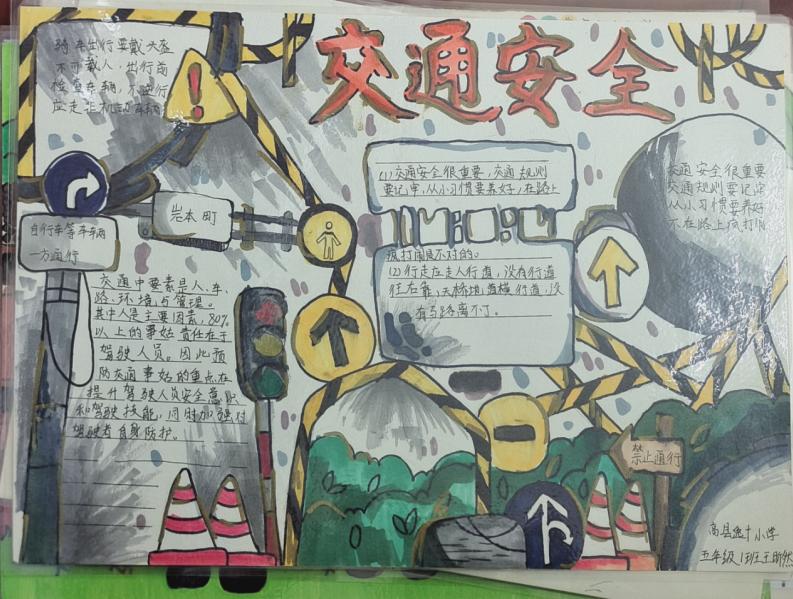 交通安全
骑车出行要戴头盔
不可载人，出行前
检查车辆，不逆行
应走非机动车辆
自行车等车辆
一方通行
岩本町
(1)交通安全很重要，交通规则
要记牢，从小习惯要养好，在路上
疯打闹是不对的。
(2)行走应走人行道，没有行道
往右靠，天桥地道横行道，没
有与路离不了。
交通安全很重要
交通规则要记牢
从小习惯要养好
不在路上疯打闹
交通中要素是人、车、
路、环境与管理。
其中人是主要因素，80%
以上的事故责任在于
驾驶人员。因此预
防交通事故的重点在
提升驾驶人员安全意识
和驾驶技能，同时加强对
驾驶者自身防护。
禁止通行
高县 小学
五年级1班王